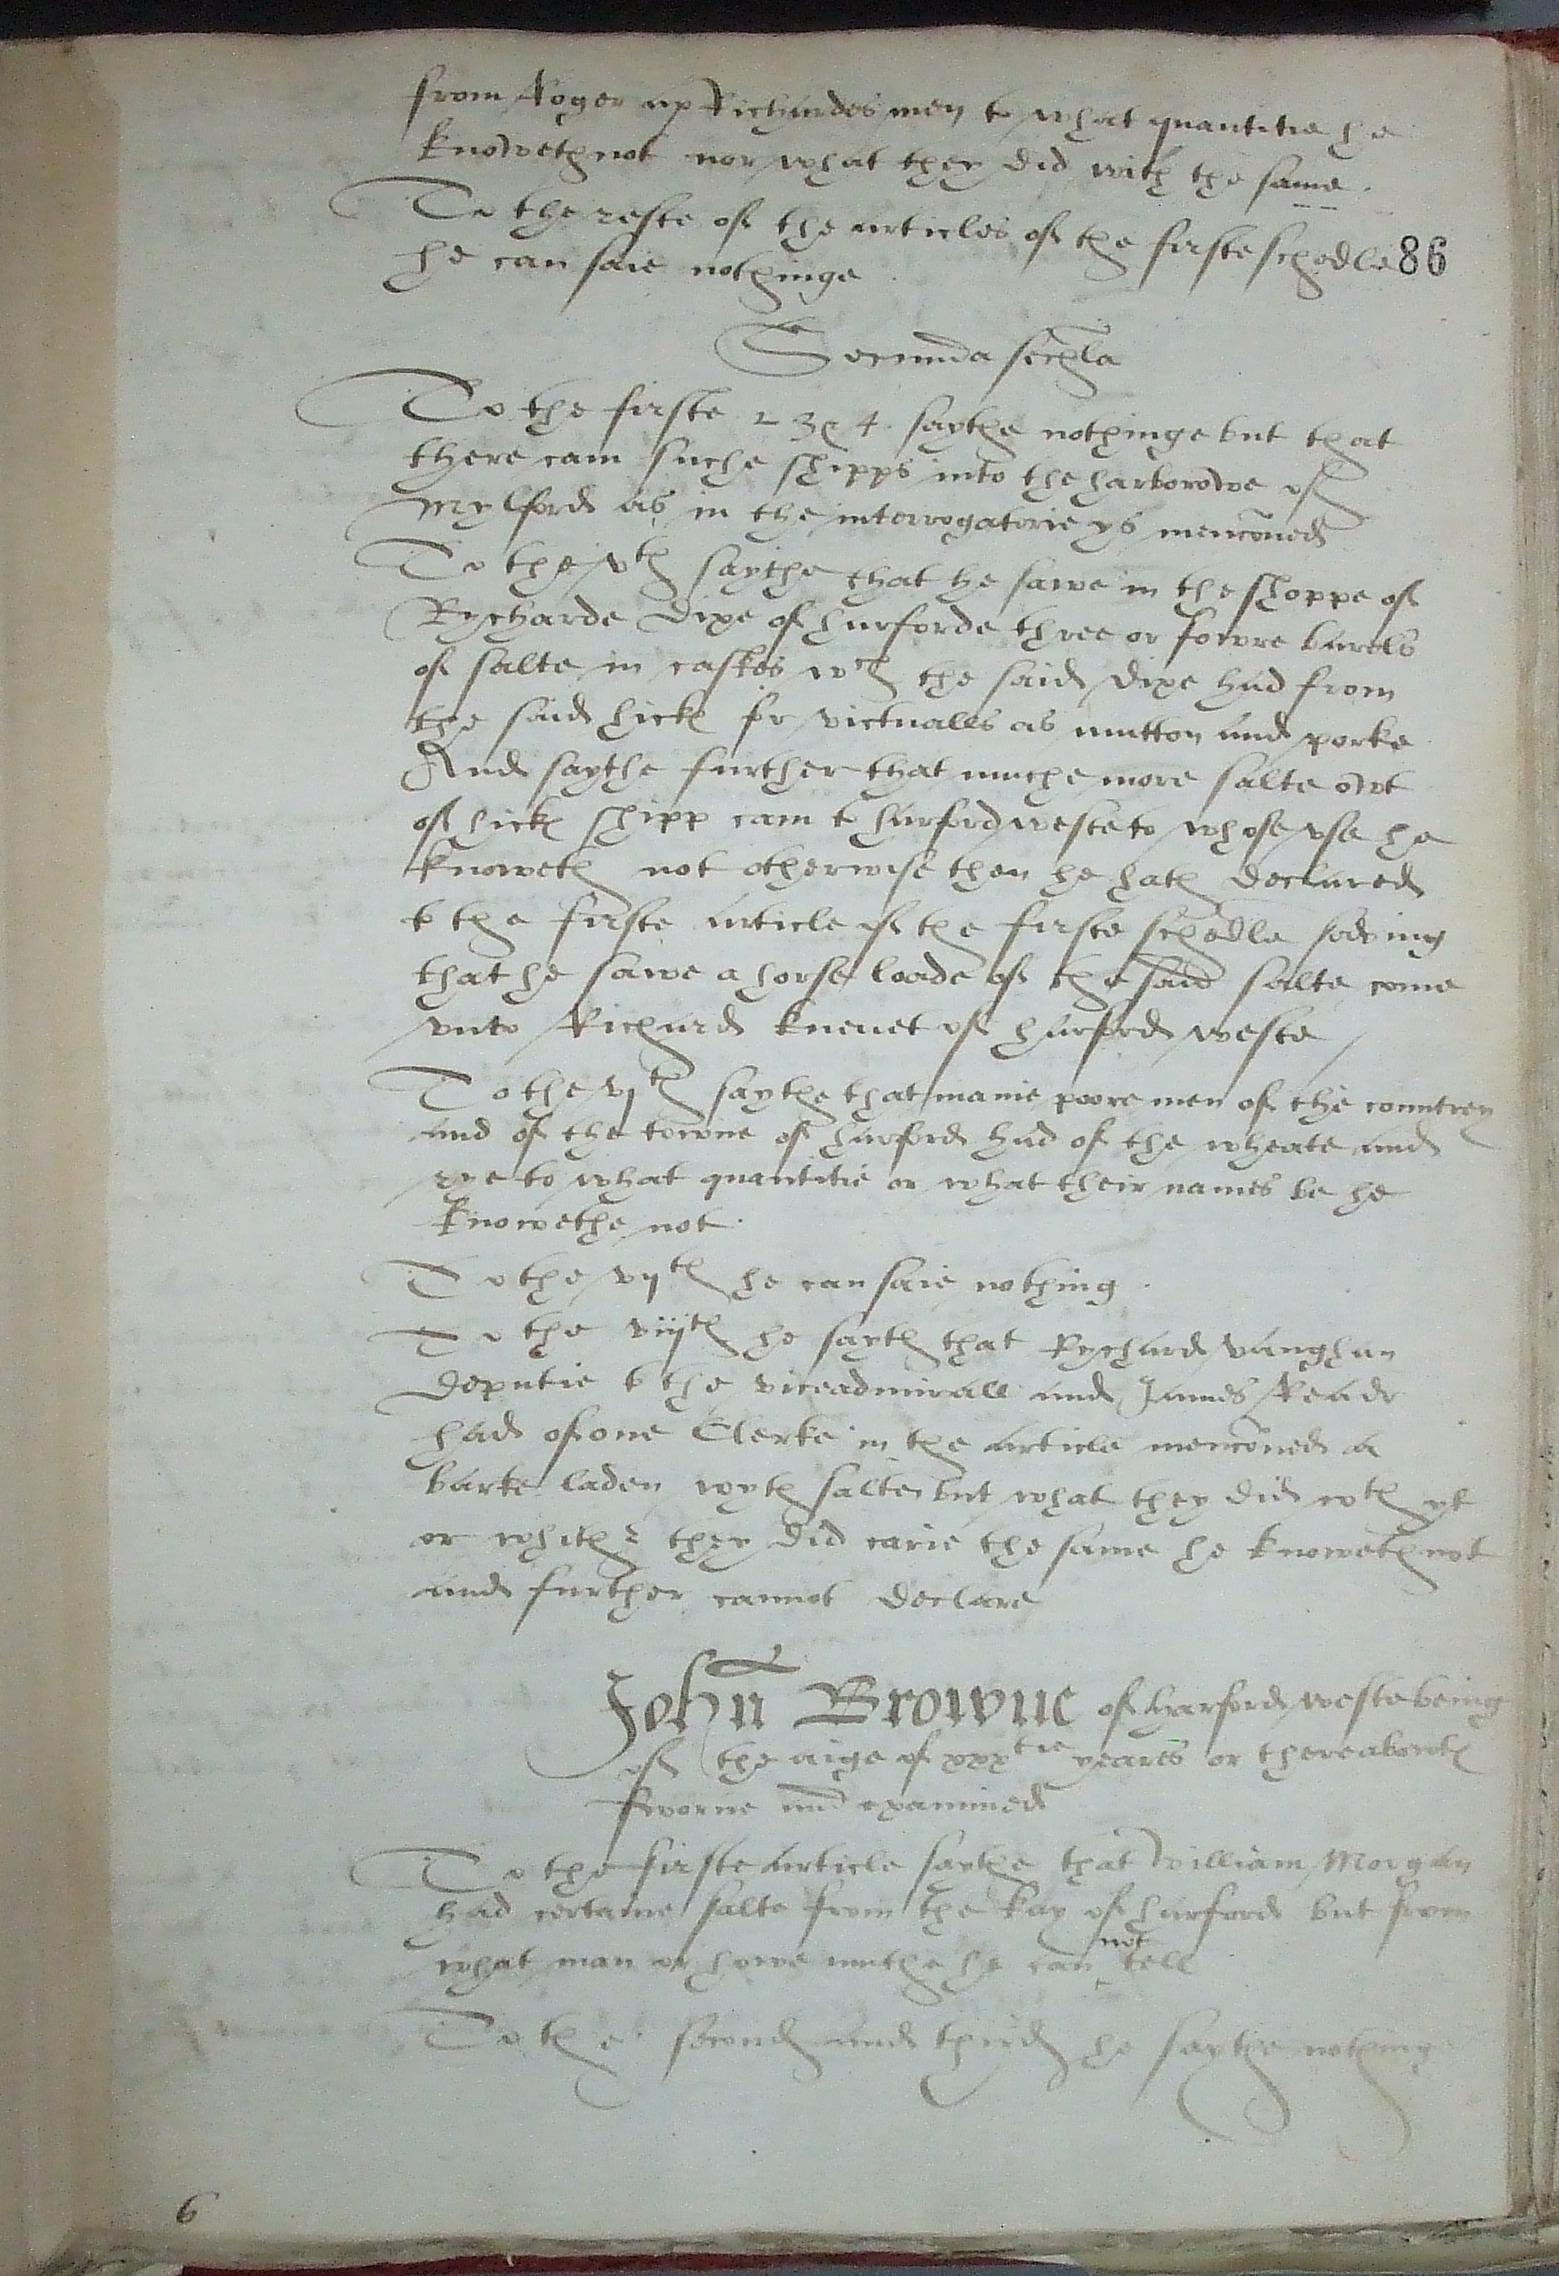 from Roger ap Richardes men to what quantitie he
knoweth not nor what they did with the same.
To the reste of the articles of the firste schedle
86
he can saie nothinge.
Secunda schla
To the firste 2 3 & 4. saythe nothinge but that
there cam suche shipps into the harborowe of
Mylford as in the interrogatorie ys menconed
To the vth saythe that he sawe in the shoppe of
Rycharde Dixe of harforde three or fowre barels
of salte in caskes wch the said Dixe had from
the said hick for victualls as mutton and porke
And saythe further that muche more salte owt
of hick shipp cam to harford weste to whose vse he
knoweth not otherwise then he hath declared
to the firste article of the firste schedle saving
that he sawe a horse loade of the said salte come
vnto Richard knevet of harford weste
To the vjth saythe that manie poore men of the countrey
and of the towne of harford had of the wheate and
rye to what quantitie or what their names be he
knowethe not.
To the vijth he can saie nothing.
To the viijth he sayth that Rychard vaughan
deputie to the viceadmirall and James Reade
had of one Clerke in the article menconed a
barke laden wyth salte but what they did wth yt
or whither they did carie the same he knoweth not
and further cannot declare
John Browne of harford weste being
of the aige of xxxtie yeares or thereabouts
sworne and examined
To the firste article saythe that william Morgan
had certaine salte from the kay of harford but from
what man or howe muche he can not tell
To the second and third he saythe nothing
6